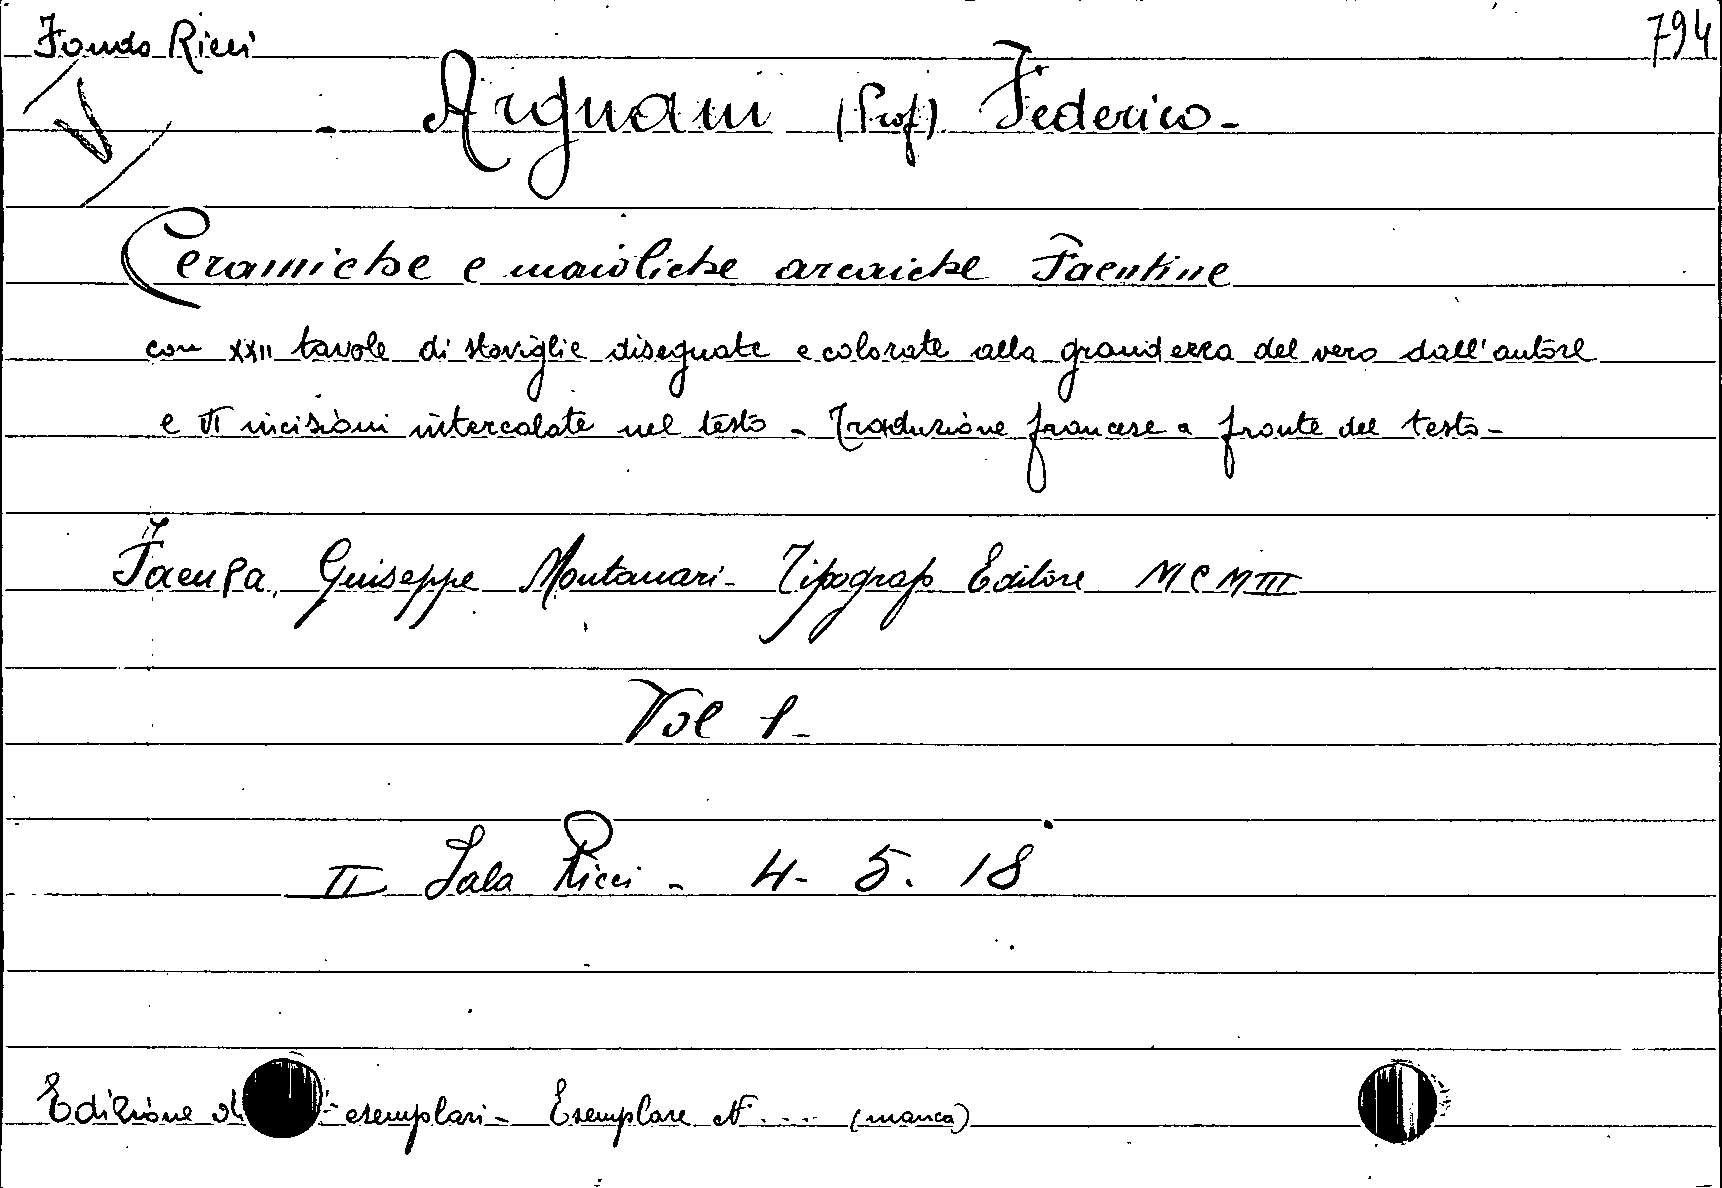 Fondo Ricci
794
V
- Argnani (Prof) Federico -
Ceramiche e maioliche arcaiche Faentine
con XXII tavole di stoviglie disegnate e colorate alla grandezza del vero dall'autore
e VI incisioni intercalate nel testo - Traduzione francese a fronte del testo -
Faenza, Giuseppe Montanari - Tipografo Editore MCMIII
Vol 1 -
II Sala Ricci - 4 - 5. 18
Edizione di esemplari - Esemplare N° .... (manca)